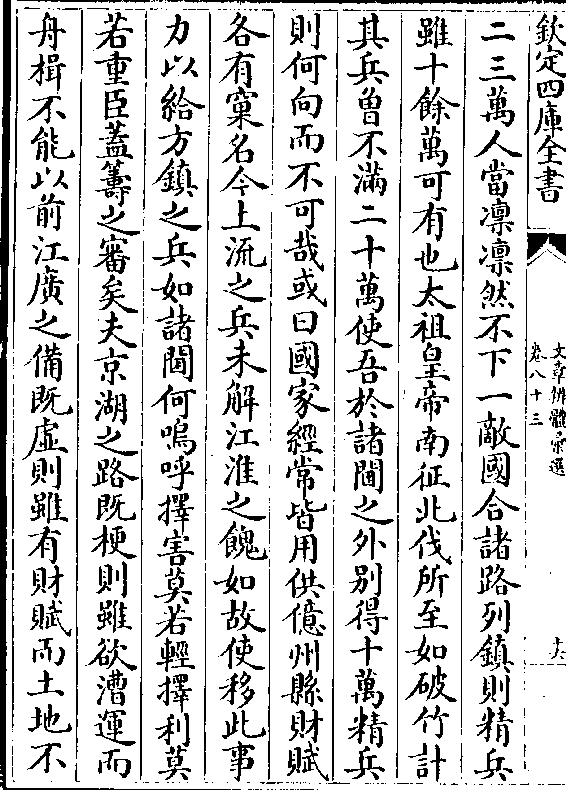 欽定四庫全書
文章辨體彙選
卷八十三
十六
二三萬人當凛凛然不下一敵國合諸路列鎮則精兵
雖十餘萬可有也太祖皇帝南征北伐所至如破竹計
其兵曾不滿二十萬使吾於諸閫之外别得十萬精兵
則何向而不可哉或曰國家經常皆用供億州縣財賦
各有窠名今上流之兵未解江淮之餽如故使移此事
力以給方鎮之兵如諸閫何嗚呼擇害莫若輕擇利莫
若重臣蓋籌之審矣夫京湖之路既梗則雖欲漕運而
舟楫不能以前江廣之備既虛則雖有財賦而土地不